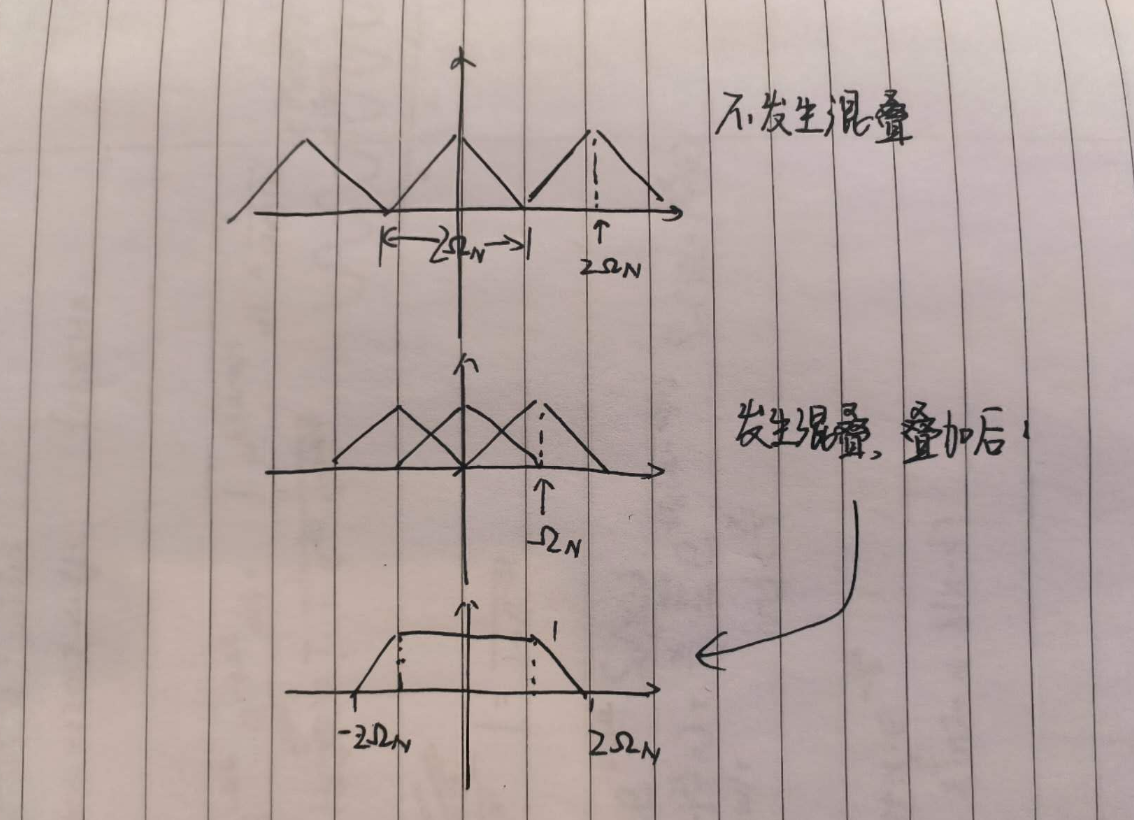 不发生混叠
2Ωɴ
2Ωɴ
发生混叠，叠加后：
Ωɴ
1
-2Ωɴ
2Ωɴ